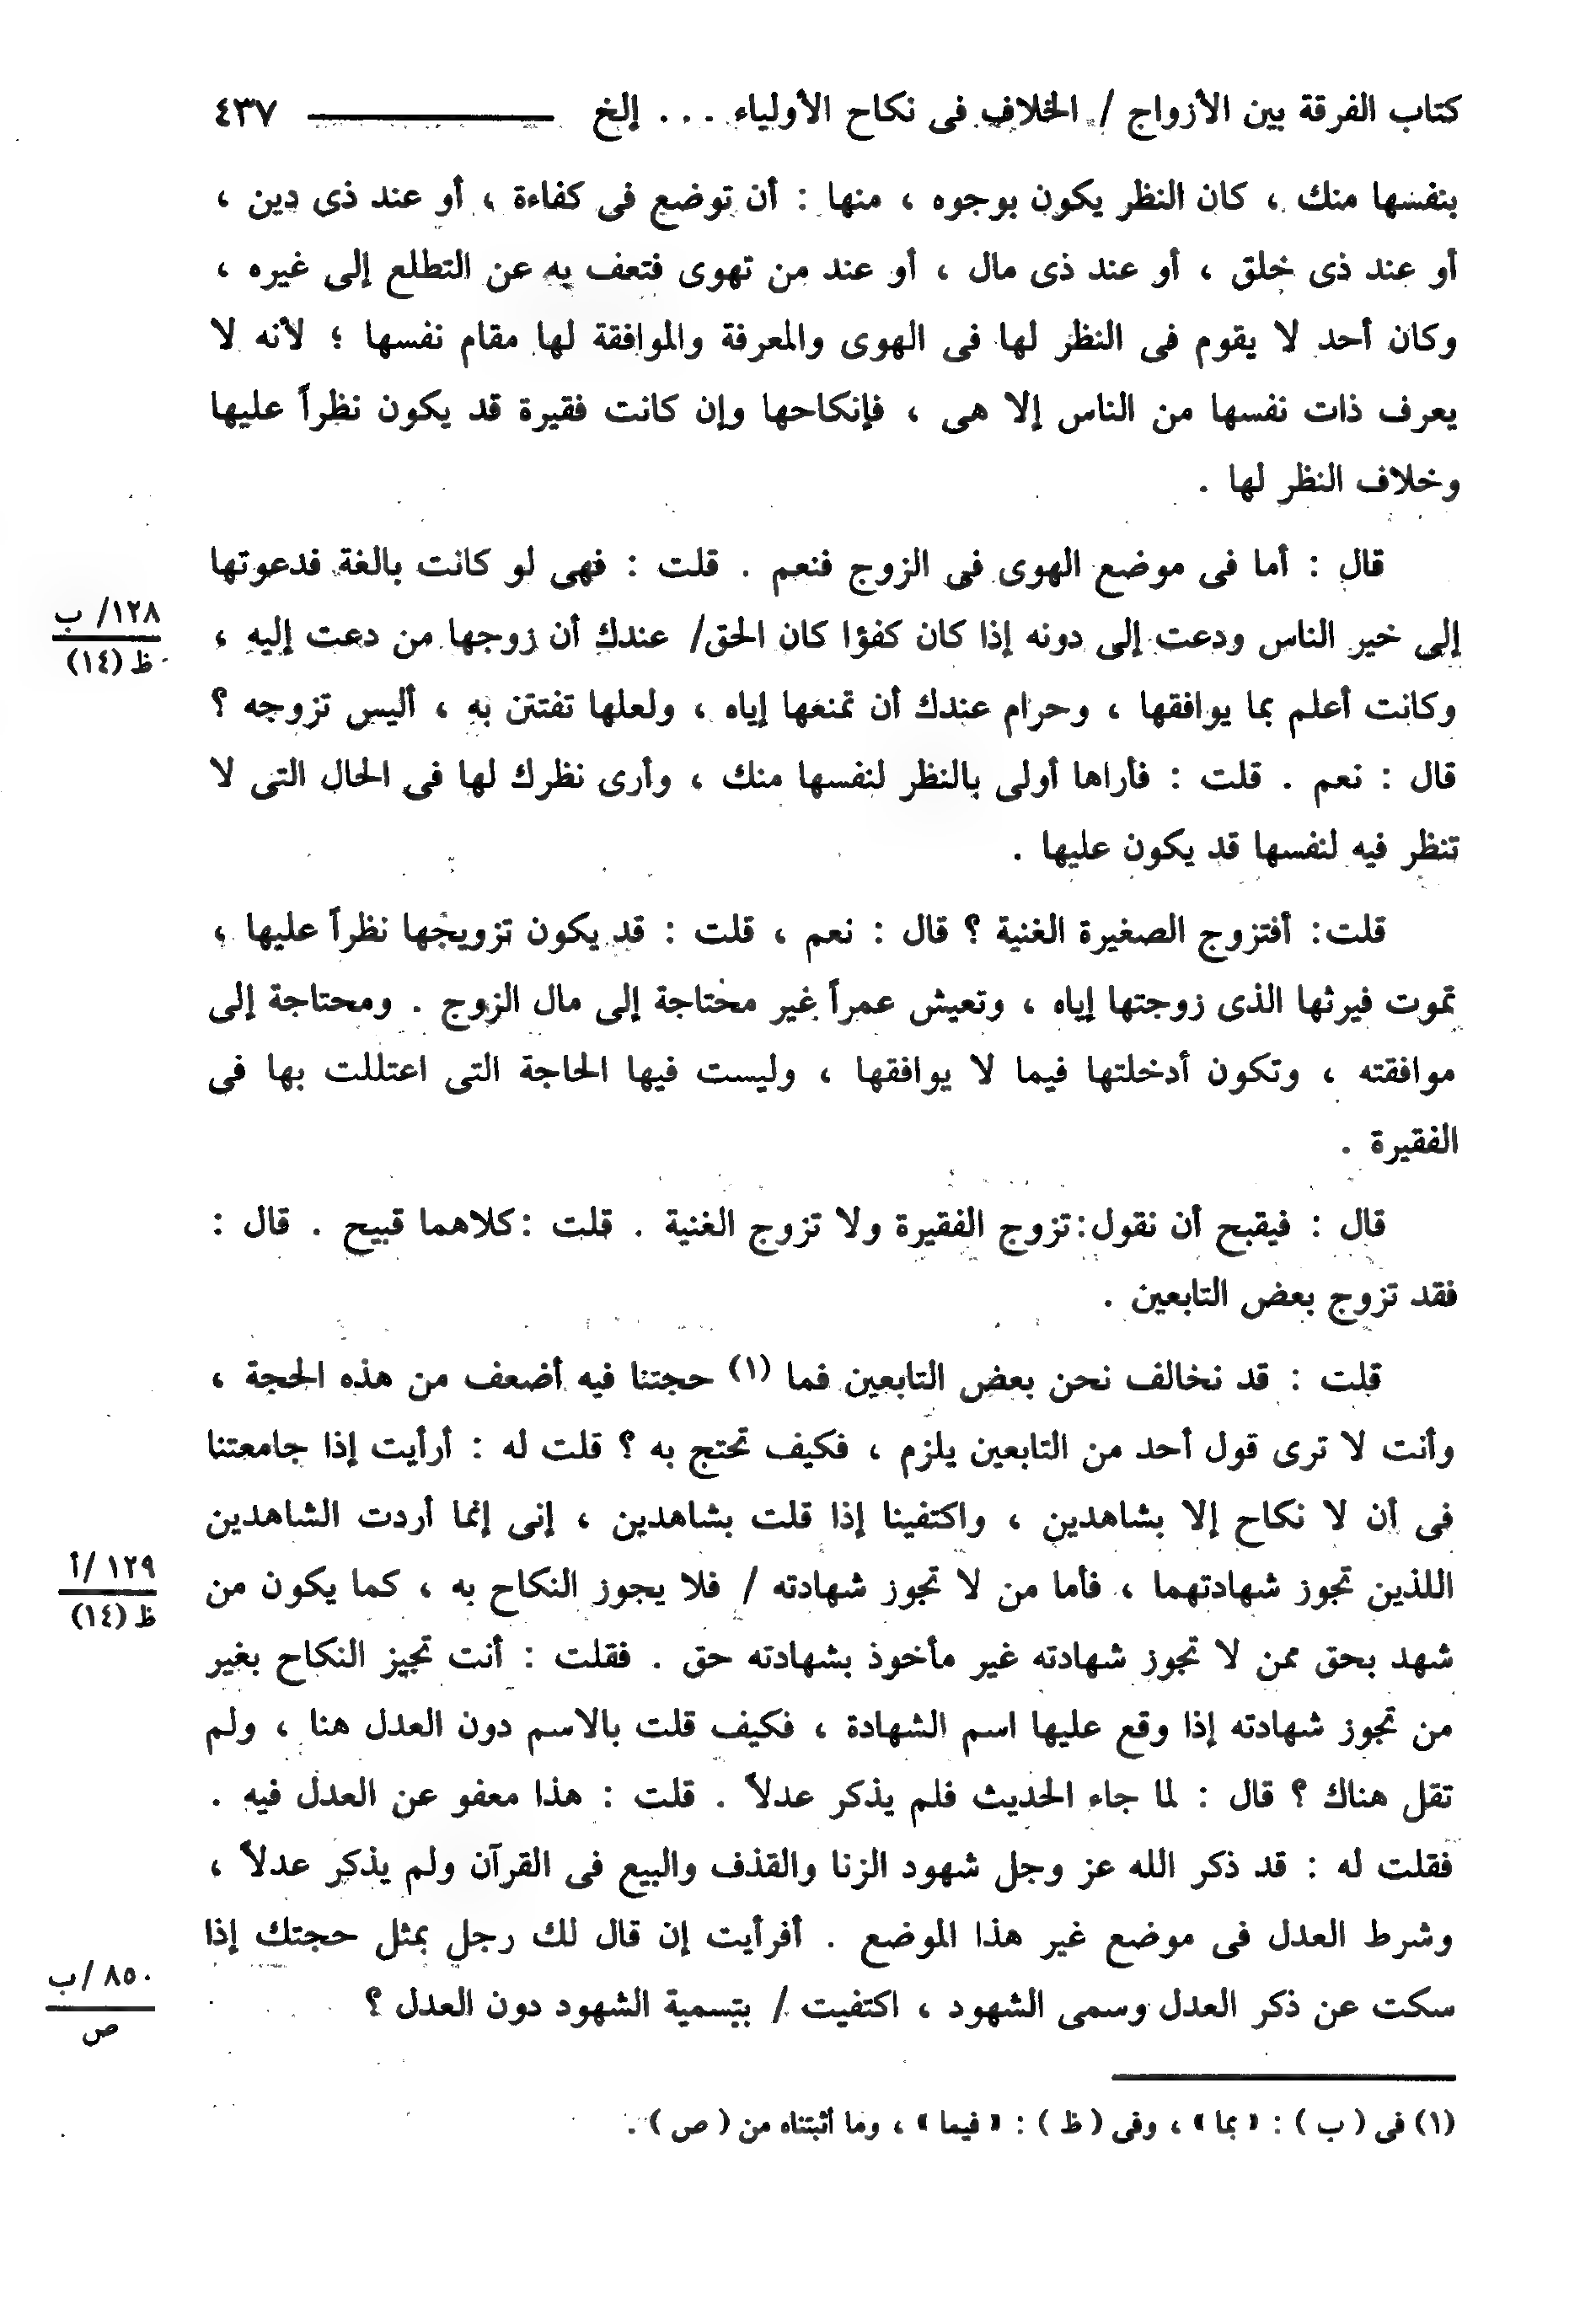 كتاب الفرقة بين الأزواج / الخلاف فى نكاح الأولياء . . . إلخ ٤٣٧
بنفسها منك ، كان النظر يكون بوجوه ، منها : أن توضع فى كفاءة ، أو عند ذى دين ،
أو عند ذى خلق ، أو عند ذى مال ، أو عند من تهوى فتعف به عن التطلع إلى غيره ،
وكان أحد لا يقوم فى النظر لها فى الهوى والمعرفة والموافقة لها مقام نفسها ؛ لأنه لا
يعرف ذات نفسها من الناس إلا هى ، فإنكاحها وإن كانت فقيرة قد يكون نظراً عليها
وخلاف النظر لها .
قال : أما فى موضع الهوى فى الزوج فنعم . قلت : فهى لو كانت بالغة فدعوتها
إلى خير الناس ودعت إلى دونه إذا كان كفؤا كان الحق/ عندك أن زوجها من دعت إليه ،
١٢٨/ ب
ظ (١٤)
وكانت أعلم بما يوافقها ، وحرام عندك أن تمنعها إياه ، ولعلها تفتتن به ، أليس تزوجه ؟
قال : نعم . قلت : فأراها أولى بالنظر لنفسها منك ، وأرى نظرك لها فى الحال التى لا
تنظر فيه لنفسها قد يكون عليها .
قلت: أفتزوج الصغيرة الغنية ؟ قال : نعم ، قلت : قد يكون تزويجها نظراً عليها ،
تموت فيرثها الذى زوجتها إياه ، وتعيش عمراً غير محتاجة إلى مال الزوج . ومحتاجة إلى
موافقته ، وتكون أدخلتها فيما لا يوافقها ، وليست فيها الحاجة التى اعتللت بها فى
الفقيرة .
قال : فيقبح أن نقول:تزوج الفقيرة ولا تزوج الغنية . قلت :كلاهما قبيح . قال :
فقد تزوج بعض التابعين .
قلت : قد نخالف نحن بعض التابعين فما (١) حجتنا فيه أضعف من هذه الحجة ،
وأنت لا ترى قول أحد من التابعين يلزم ، فكيف تحتج به ؟ قلت له : أرأيت إذا جامعتنا
فى أن لا نكاح إلا بشاهدين ، واكتفينا إذا قلت بشاهدين ، إنى إنما أردت الشاهدين
اللذين تجوز شهادتهما ، فأما من لا تجوز شهادته / فلا يجوز النكاح به ، كما يكون من
١٢٩ /أ
ظ (١٤)
شهد بحق ممن لا تجوز شهادته غير مأخوذ بشهادته حق . فقلت : أنت تجيز النكاح بغير
من تجوز شهادته إذا وقع عليها اسم الشهادة ، فكيف قلت بالاسم دون العدل هنا ، ولم
تقل هناك ؟ قال : لما جاء الحديث فلم يذكر عدلاً . قلت : هذا معفو عن العدل فيه .
فقلت له : قد ذكر الله عز وجل شهود الزنا والقذف والبيع فى القرآن ولم يذكر عدلاً ،
وشرط العدل فى موضع غير هذا الموضع . أفرأيت إن قال لك رجل بمثل حجتك إذا
سكت عن ذكر العدل وسمى الشهود ، اكتفيت / بتسمية الشهود دون العدل ؟
٨٥٠ /ب
ص
(١) فى ( ب ) : « بما » ، وفى ( ظ ) : « فيما » ، وما أثبتناه من ( ص ) .